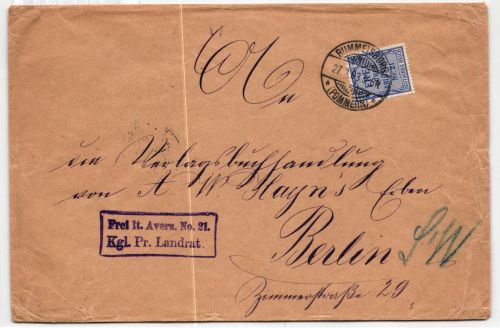 An
RUMMELSBURG
(POMMERN)
die Verlagsbuchhandlung
von A W Hayn's Erben
Frei lt. Avers. No. 21.
Kgl. Pr. Landrat.
Berlin SW
Zimmerstraße 29